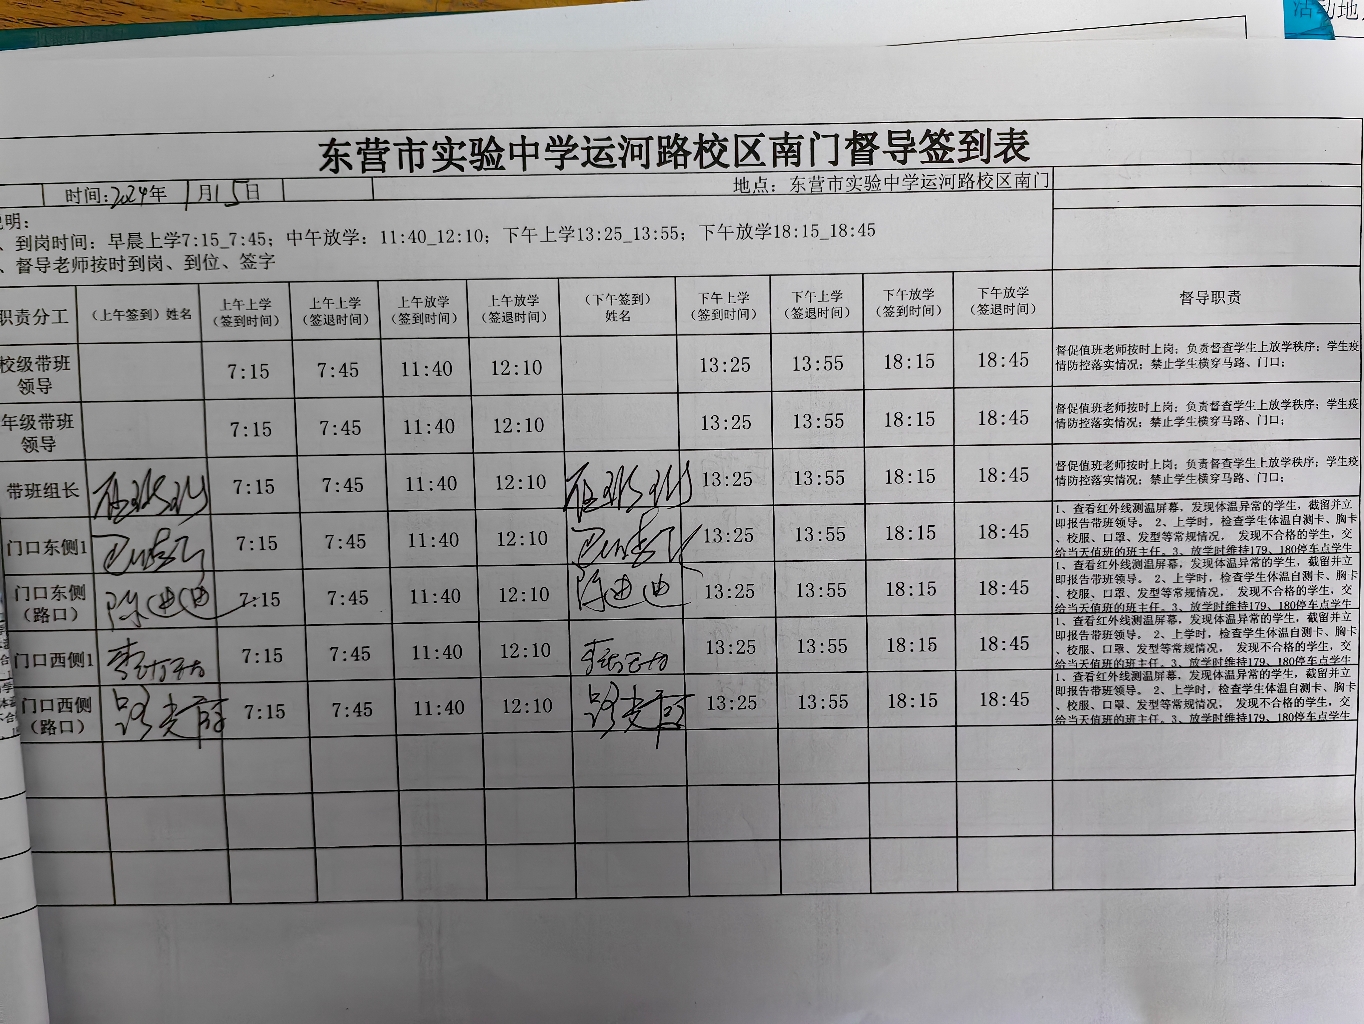 活动地
东营市实验中学运河路校区南门督导签到表
时间:2024年 1月15日
地点：东营市实验中学运河路校区南门
说明：
、到岗时间：早晨上学7:15_7:45；中午放学：11:40_12:10；下午上学13:25_13:55；下午放学18:15_18:45
、督导老师按时到岗、到位、签字
职责分工 （上午签到）姓名 上午上学（签到时间） 上午上学（签退时间） 上午放学（签到时间） 上午放学（签退时间） （下午签到）姓名 下午上学（签到时间） 下午上学（签退时间） 下午放学（签到时间） 下午放学（签退时间） 督导职责
校级带班领导 7:15 7:45 11:40 12:10 13:25 13:55 18:15 18:45
督促值班老师按时上岗；负责督查学生上放学秩序；学生疫
情防控落实情况；禁止学生横穿马路、门口；
年级带班领导 7:15 7:45 11:40 12:10 13:25 13:55 18:15 18:45
督促值班老师按时上岗；负责督查学生上放学秩序；学生疫
情防控落实情况；禁止学生横穿马路、门口；
带班组长 7:15 7:45 11:40 12:10 13:25 13:55 18:15 18:45
督促值班老师按时上岗；负责督查学生上放学秩序；学生疫
情防控落实情况；禁止学生横穿马路、门口；
门口东侧1 7:15 7:45 11:40 12:10 13:25 13:55 18:15 18:45
1、查看红外线测温屏幕，发现体温异常的学生，截留并立
即报告带班领导。 2、上学时，检查学生体温自测卡、胸卡
、校服、口罩、发型等常规情况， 发现不合格的学生，交
给当天值班的班主任。3、放学时维持179、180停车点学生
门口东侧（路口） 陈迪迪 7:15 7:45 11:40 12:10 陈迪迪 13:25 13:55 18:15 18:45
1、查看红外线测温屏幕，发现体温异常的学生，截留并立
即报告带班领导。 2、上学时，检查学生体温自测卡、胸卡
、校服、口罩、发型等常规情况， 发现不合格的学生，交
给当天值班的班主任。3、放学时维持179、180停车点学生
门口西侧1 7:15 7:45 11:40 12:10 13:25 13:55 18:15 18:45
1、查看红外线测温屏幕，发现体温异常的学生，截留并立
即报告带班领导。 2、上学时，检查学生体温自测卡、胸卡
、校服、口罩、发型等常规情况， 发现不合格的学生，交
给当天值班的班主任。3、放学时维持179、180停车点学生
门口西侧（路口） 7:15 7:45 11:40 12:10 13:25 13:55 18:15 18:45
1、查看红外线测温屏幕，发现体温异常的学生，截留并立
即报告带班领导。 2、上学时，检查学生体温自测卡、胸卡
、校服、口罩、发型等常规情况， 发现不合格的学生，交
给当天值班的班主任。3、放学时维持179、180停车点学生